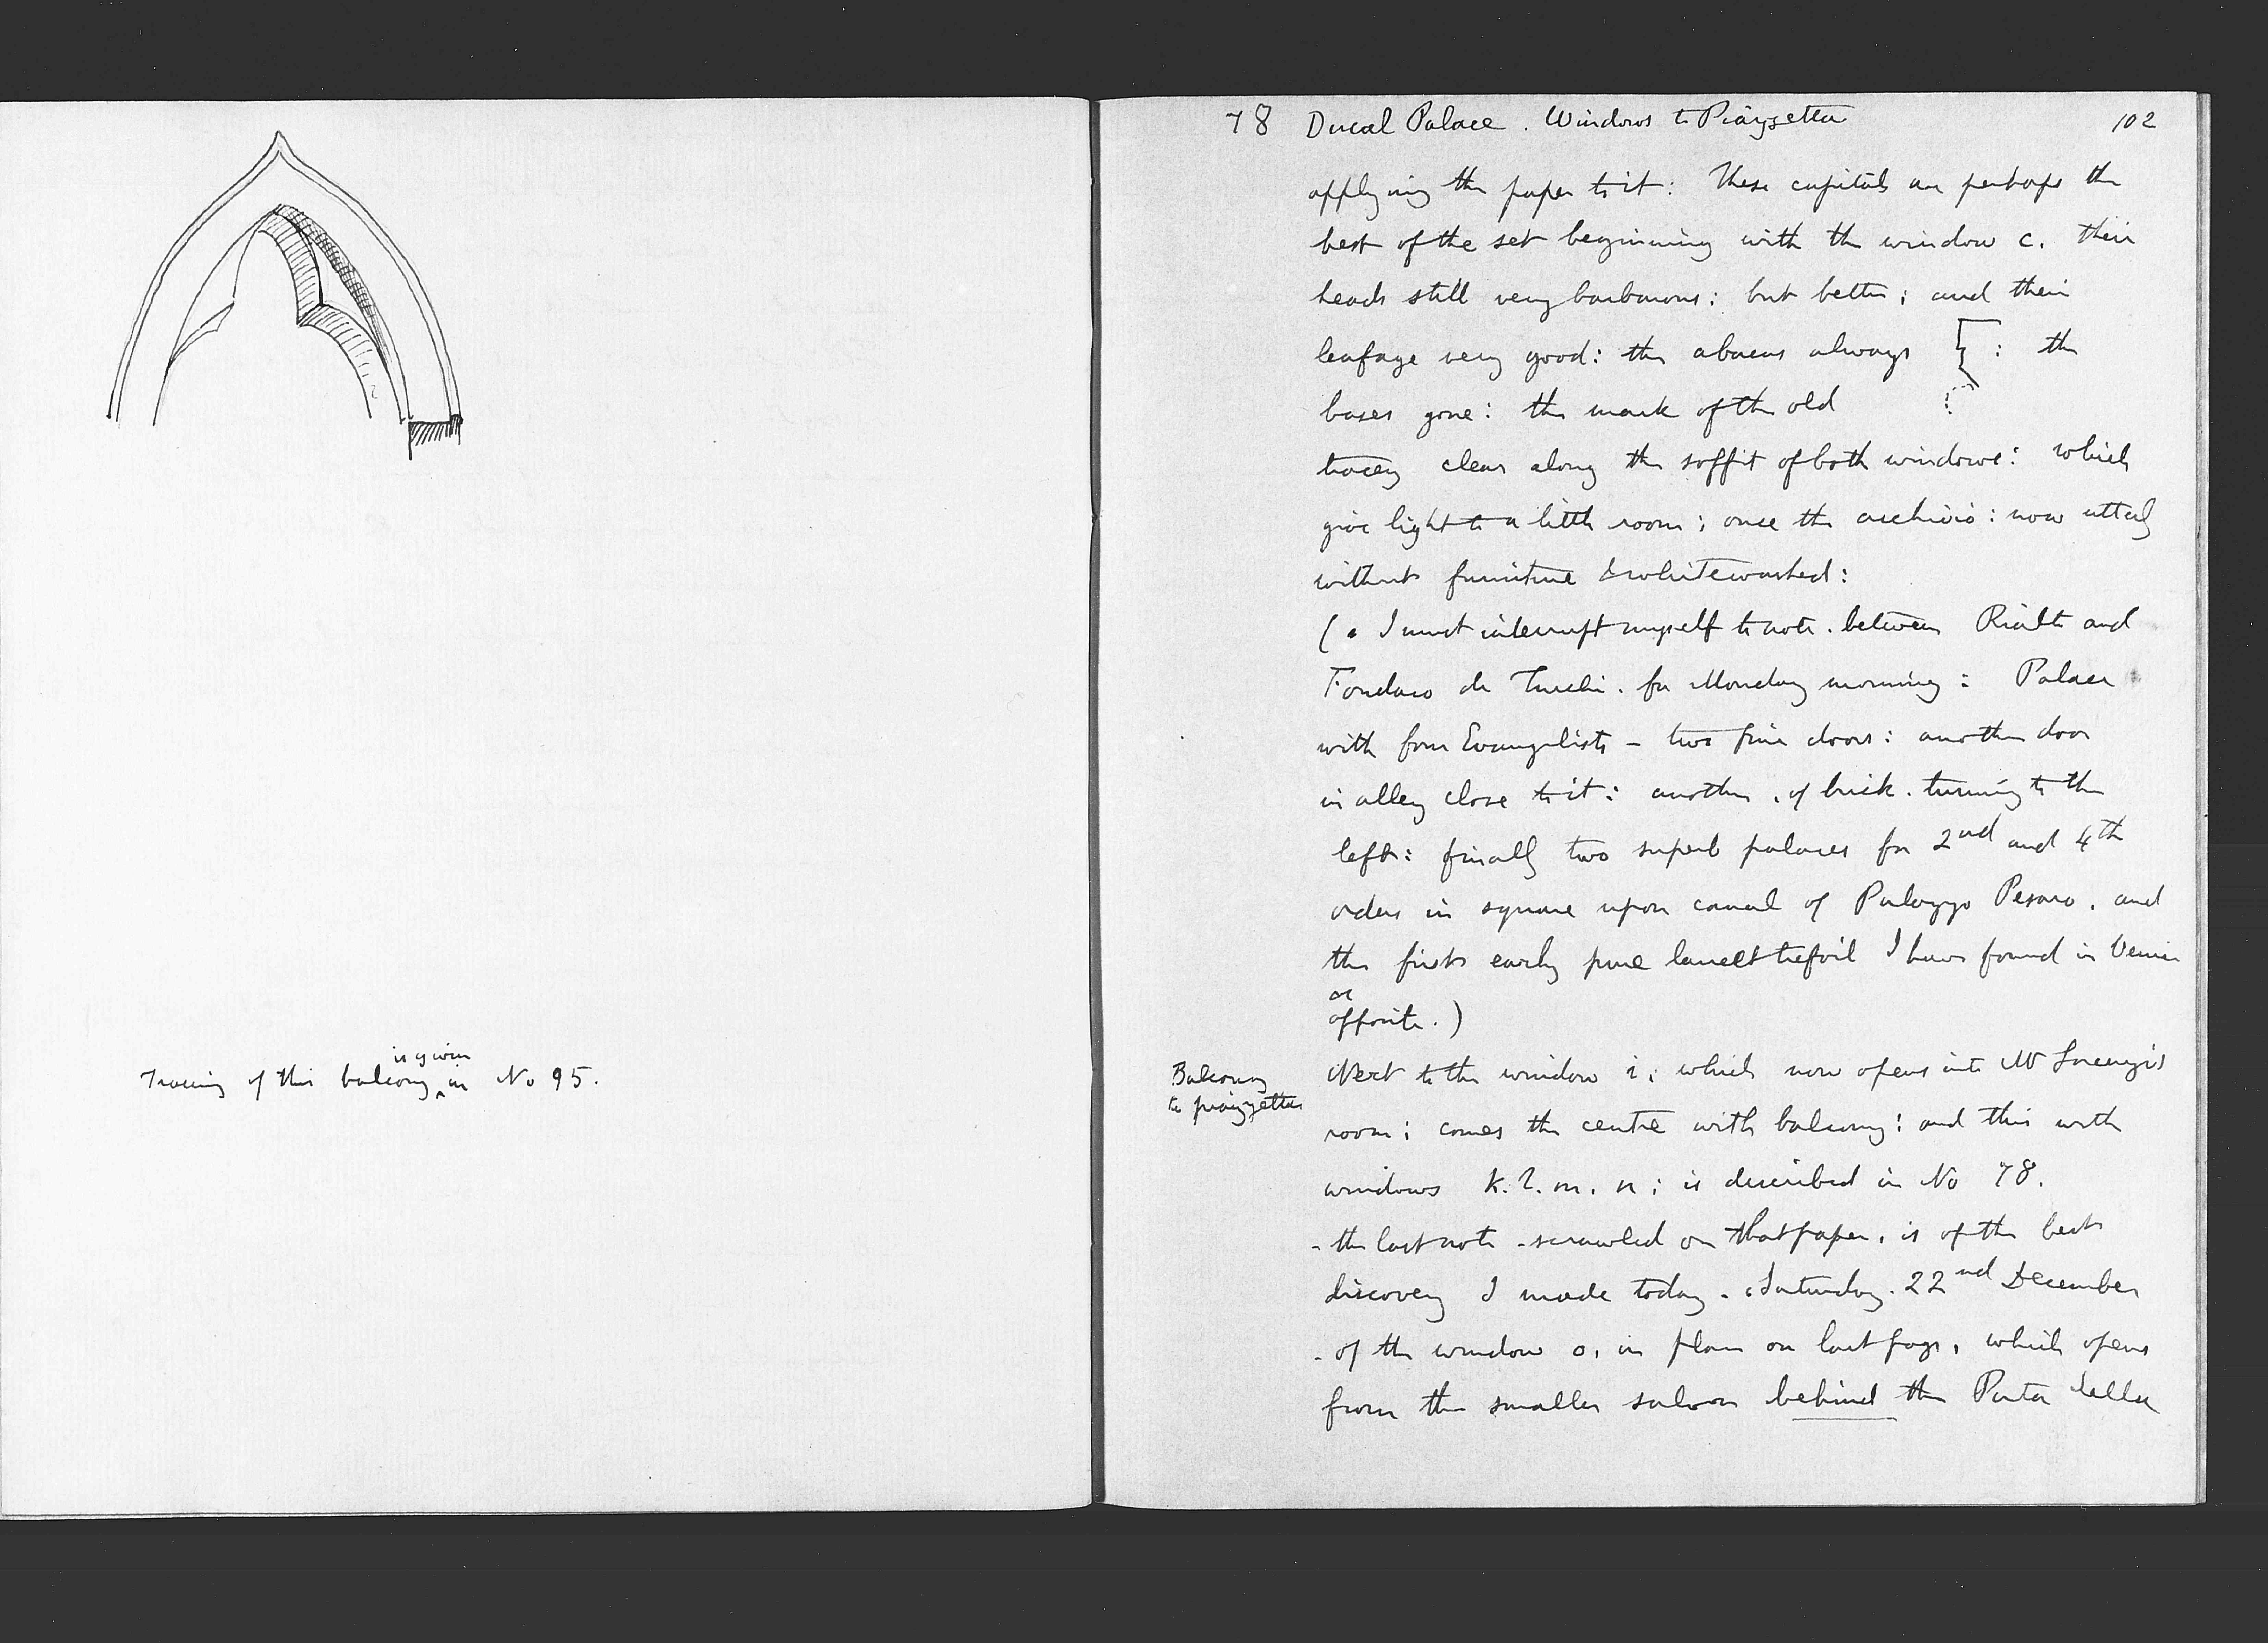 Tracing of this balcony is given in No 95.
78 Ducal Palace. Windows to Piazzetta 102
applying the paper to it: These capitals are perhaps the
best of the set beginning with the window c. their
heads still very barbarous: but better; and their
leafage very good: the abacus always : the
bases gone: the mark of the old
tracery clear along the soffit of both windows: which
give light to a little room; once the archivio: now utterly
without furniture & whitewashed:
(I must interrupt myself to note. between Rialto and
Fondaco de Turchi. for Monday morning: Palace
with four Evangelists - two fine doors: another door
in alley close to it: another, of brick. turning to the
left: finally two superb palaces for 2nd and 4th
orders in square upon canal of Palazzo Pesaro, and
the first early pure lancet trefoil I have found in Venice
opposite.)
Balcony
to piazzetta
Next to the window i, which now opens into Mr Lorenzi's
room; comes the centre with balcony: and this with
windows k. l. m. n; is described in No 78.
- the last note - scrawled on that paper, is of the best
discovery I made today. Saturday. 22nd December
- of the window o, in plan on last page, which opens
from the smaller saloon behind the Porta della